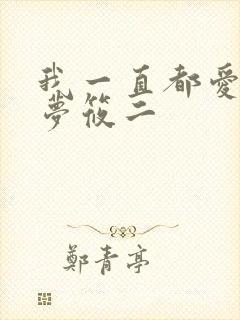 我一直都愛
夢筱二
鄭青亭